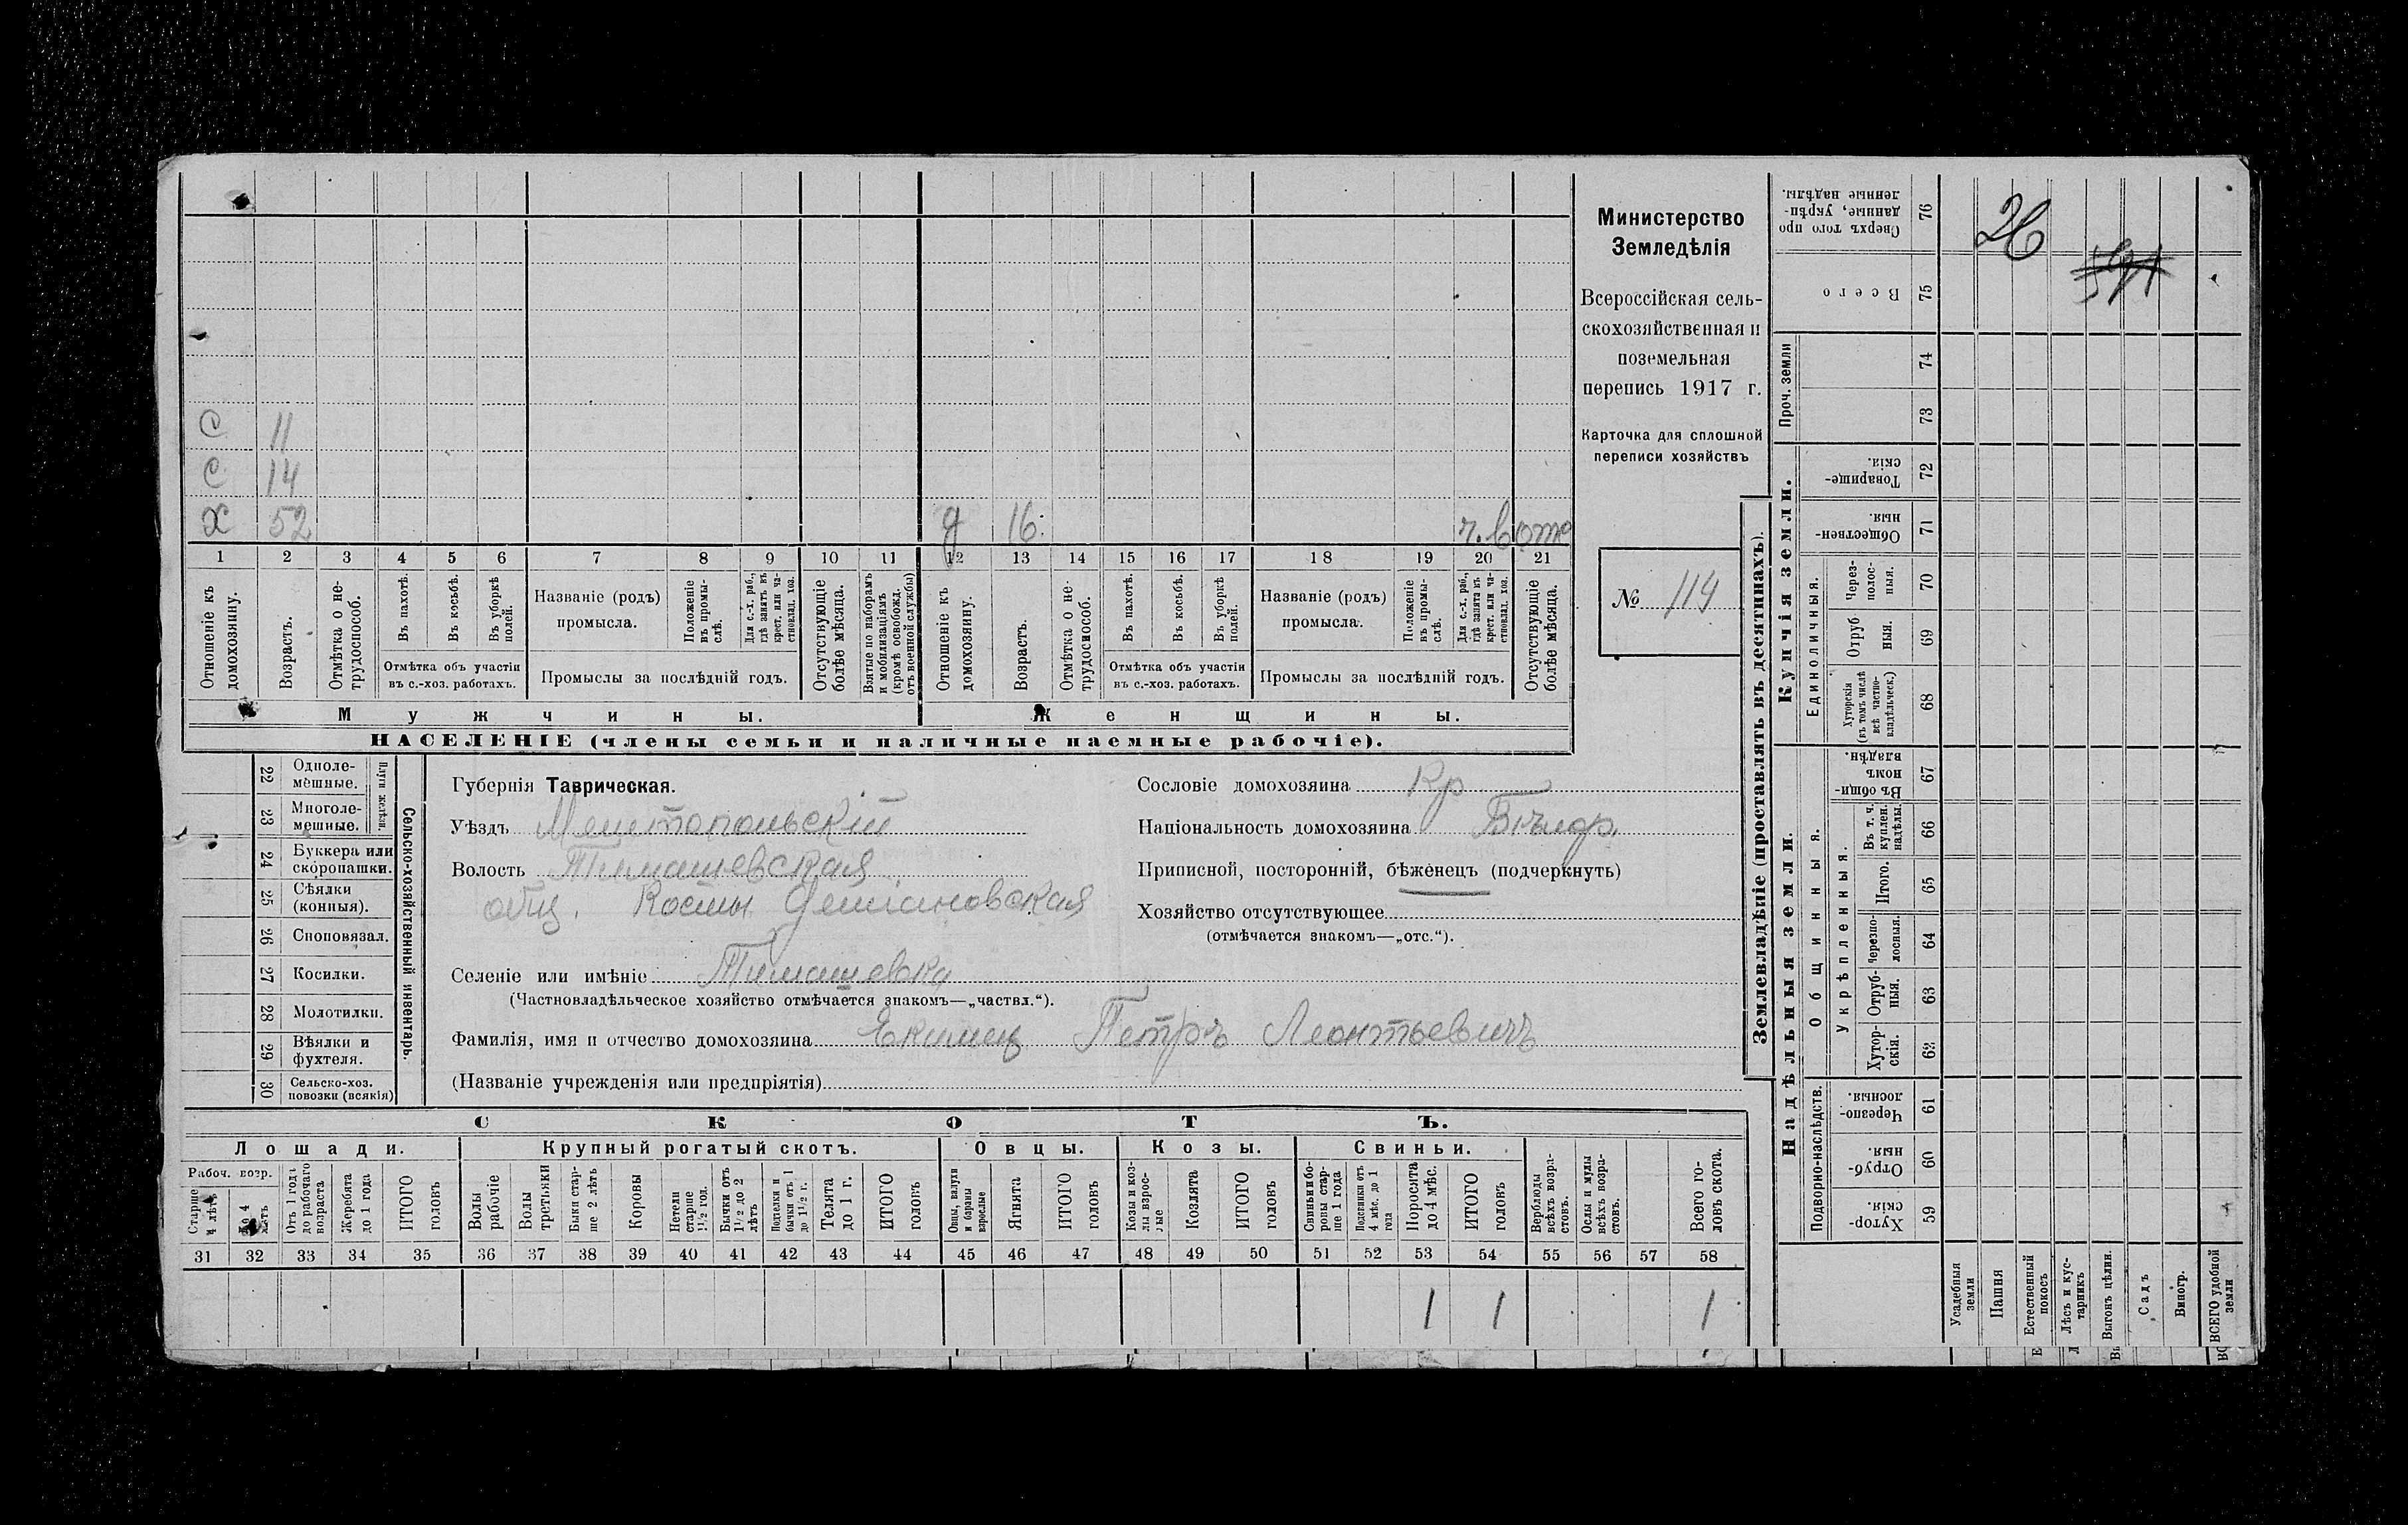 Министерство
Земледѣлія
Всероссійская сель-
скохозяйственная и
поземельная
перепись 1917 г.
Карточка для сплошной
переписи хозяйствъ
№ 114
С 11
С 14
Х 52
д 16
1 2 3 4 5 6 7 8 9 10 11 12 13 14 15 16 17 18 19 20 21
Отношеніе къ домохозяину.
Возрастъ.
Отмѣтка о не-трудоспособ.
Въ пахотѣ.
Въ косьбѣ.
Въ уборкѣ полей.
Отмѣтка объ участіи въ с.-хоз. работахъ.
Названіе (родъ) промысла.
Положеніе въ промы-слѣ.
Для с.-х. раб., гдѣ занятъ въ крест. или ча-стновлад. хоз.
Промыслы за послѣдній годъ.
Отсутствующіе болѣе мѣсяца.
Взятые по наборамъ и мобилизаціямъ (кромѣ освобожд. отъ военной службы)
Отношеніе къ домохозяину.
Возрастъ.
Отмѣтка о не-трудоспособ.
Въ пахотѣ.
Въ косьбѣ.
Въ уборкѣ полей.
Отмѣтка объ участіи въ с.-хоз. работахъ.
Названіе (родъ) промысла.
Положеніе въ промы-слѣ.
Для с.-х. раб., гдѣ занята въ крест. или ча-стновлад. хоз.
Промыслы за послѣдній годъ.
Отсутствующіе болѣе мѣсяца.
Мужчины.
Женщины.
НАСЕЛЕНІЕ (члены семьи и наличные наемные рабочіе).
22 Одноле-мешные.
23 Многоле-мешные.
Плуги желѣзн.
24 Буккера или скоропашки.
25 Сѣялки (конныя).
26 Сноповязал.
27 Косилки.
28 Молотилки.
29 Вѣялки и фухтеля.
30 Сельско-хоз. повозки (всякія)
Сельско-хозяйственный инвентарь.
Губернія Таврическая.
Уѣздъ Мелитопольскій
Волость Тимашевская
общ.
Селеніе или имѣніе Тимашевка
(Частновладѣльческое хозяйство отмѣчается знакомъ—„частвл.“).
Фамилія, имя и отчество домохозяина Екимец Петръ Леонтьевичъ
(Названіе учрежденія или предпріятія)
Сословіе домохозяина Кр
Національность домохозяина Бѣлор.
Приписной, посторонній, бѣженецъ (подчеркнуть)
Хозяйство отсутствующее
(отмѣчается знакомъ—„отс.“).
СКОТЪ.
Лошади. Крупный рогатый скотъ. Овцы. Козы. Свиньи.
Рабоч. возр.
Старше 4 лѣтъ
До 4 лѣтъ
Отъ 1 года до рабочаго возраста
Жеребята до 1 года
ИТОГО головъ
Волы рабочіе
Волы третьяки
Быки стар-ше 2 лѣтъ
Коровы
Нетели старше 1 1/2 год.
Бычки отъ 1 1/2 до 2 лѣтъ
Подтелки и бычки отъ 1 до 1 1/2 г.
Телята до 1 г.
ИТОГО головъ
Овцы, валухи и бараны взрослые
Ягнята
ИТОГО головъ
Козы и коз-лы взрос-лые
Козлята
ИТОГО головъ
Свиньи и бо-ровы стар-ше 1 года
Подсвинки отъ 4 мѣс. до 1 года
Поросята до 4 мѣс.
ИТОГО головъ
Верблюды всѣхъ возра-стовъ.
Ослы и мулы всѣхъ возра-стовъ.
Всего го-ловъ скота.
31 32 33 34 35 36 37 38 39 40 41 42 43 44 45 46 47 48 49 50 51 52 53 54 55 56 57 58
1 1 1
Землевладѣніе (проставлять въ десятинахъ).
Надѣльныя земли.
Купчія земли.
Проч. земли
Сверхъ того про-данные, укрѣп-ленные надѣлы. 76
Всего 75
74
73
Товарище-скія. 72
Обществен-ныя. 71
Единоличныя.
Через-полос-ныя. 70
Отруб-ныя. 69
Хуторскія (въ томъ числѣ всѣ частно-владѣльческ.) 68
Общинныя.
Въ общи-номъ владѣн. 67
Укрѣпленныя.
Въ т. ч. куплен. надѣлы. 66
Итого. 65
Черезпо-лосныя. 64
Отруб-ныя. 63
Хутор-скія. 62
Подворно-наслѣдств.
Черезпо-лосныя. 61
Отруб-ныя. 60
Хутор-скія. 59
Усадебныя земли
Пашня
Естественный покосъ
Лѣсъ и кус-тарникъ
Выгонъ цѣлин.
Садъ
Виногр.
ВСЕГО удобной земли